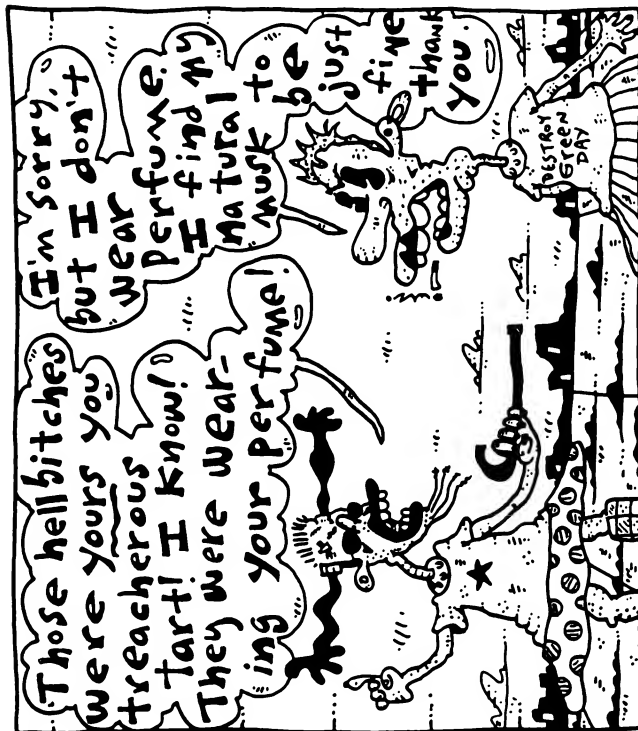 Those hellbitches
were yours you
treacherous
tart! I know!
They were wear-
ing your perfume!
I'm sorry,
but I don't
wear
perfume.
I find my
natural
musk to
be
just
fine
thank
you.
DESTROY
Green
DAY